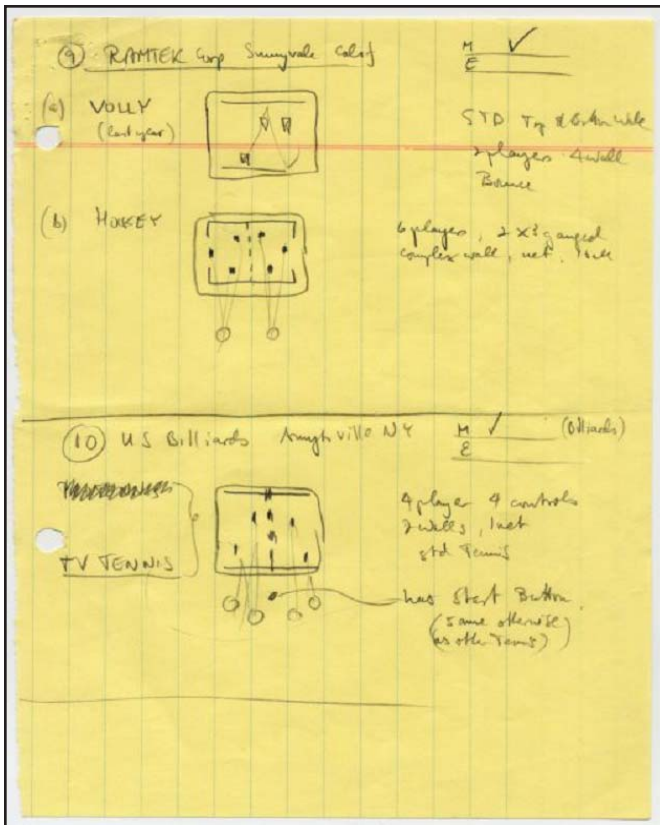 9 RAMTEK Corp Sunnyvale Calif
M ✓
E
(a) VOLLY
(last year)
STD Top & Bottom Walls
2 players 4 wall
Bounce
(b) HOCKEY
6 players, 2 x 3 ganged
complex wall, net,
10 US Billiards Amityville NY
M ✓ (Billiards)
E
4 player 4 controls
2 walls, 1 net
std Tennis
TV TENNIS
has Start Button
(same otherwise
as other Tennis)